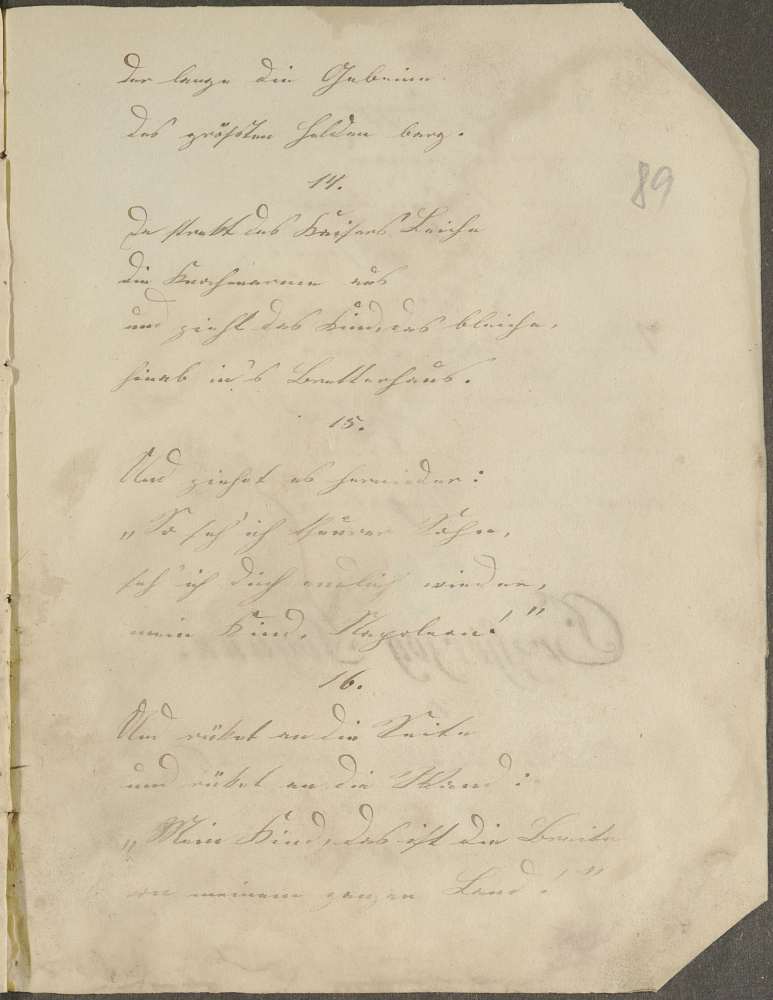 der lange die Gebeine
des größten Helden barg.
89
14.
Da strekt des Kaisers Leiche
die Knochenarme aus
und zieht das Kind, das bleiche,
hinab in's Bretterhaus.
15.
Und ziehet es hernieder:
„So seh' ich theurer Sohn,
seh' ich dich endlich wieder,
mein Kind, Napoleon!"
16.
Und rüket an die Seite
und rüket an die Wand:
„Mein Kind, das ist die Breite
von meinem ganzen Land!"